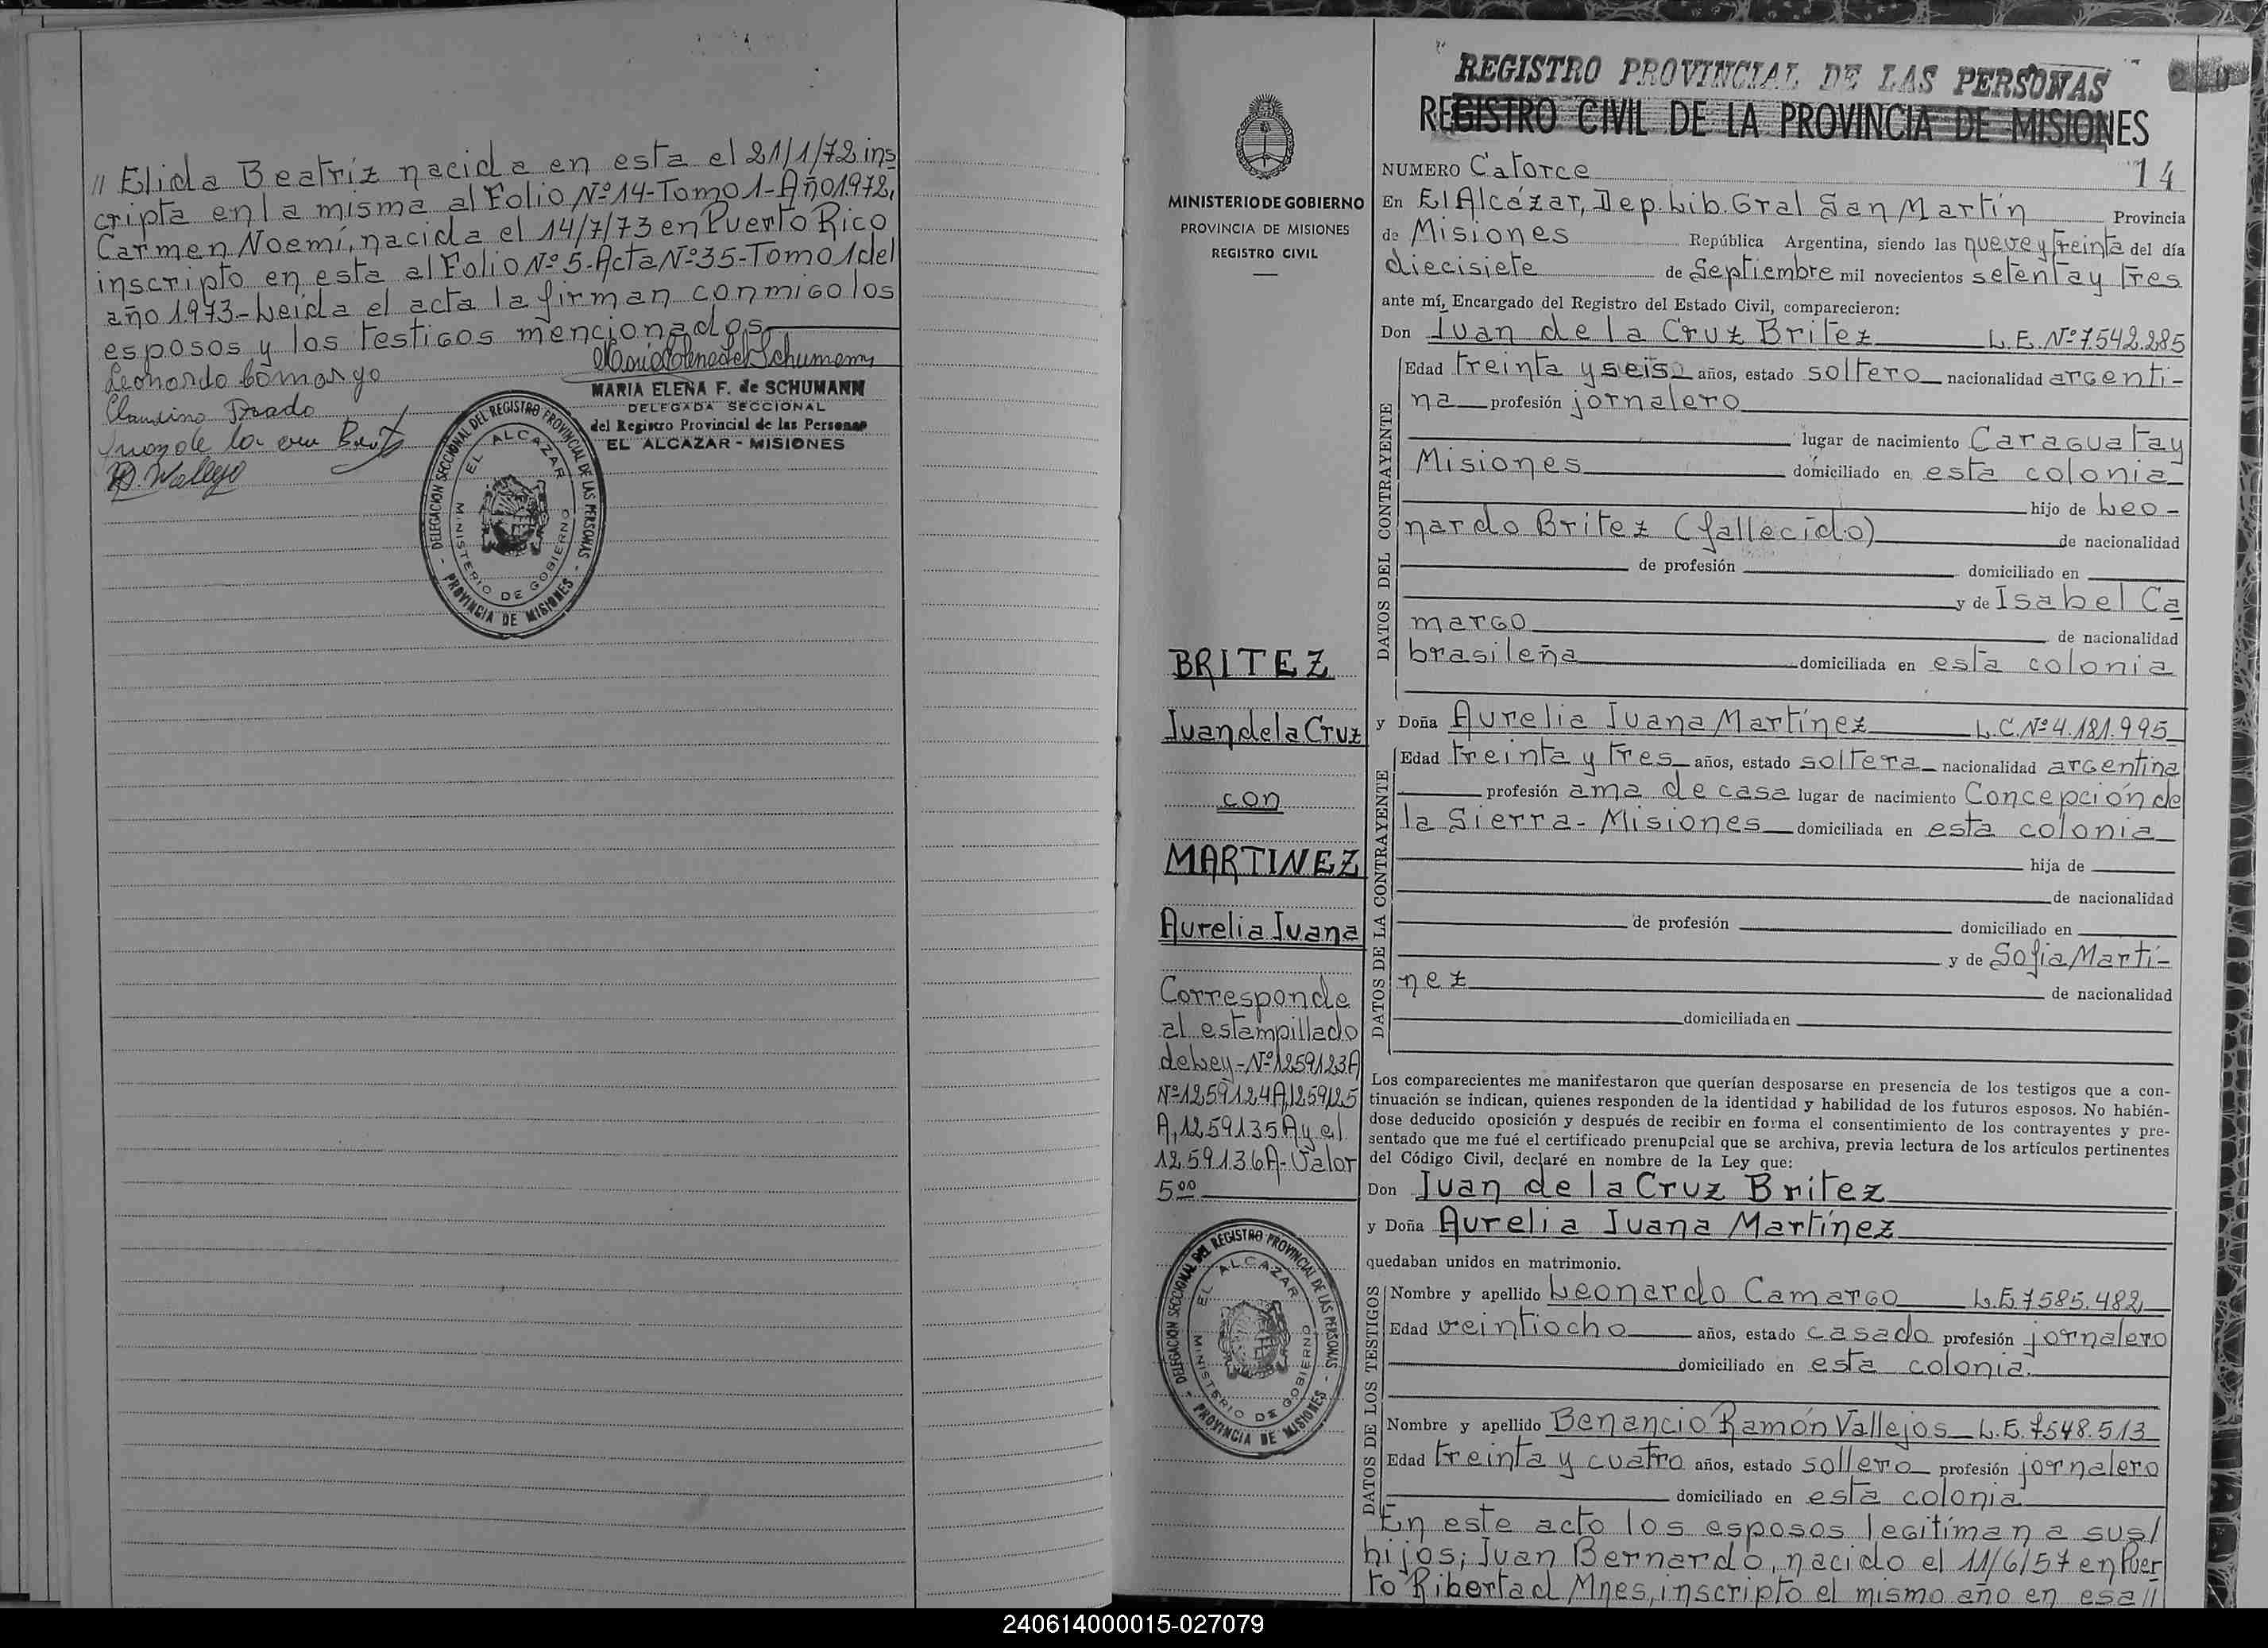 // Elida Beatriz nacida en esta el 21/1/72 ins
cripta en la misma al Folio Nº 14-Tomo 1-Año 1972,
Carmen Noemí, nacida el 14/7/73 en Puerto Rico
inscripto en esta al Folio Nº 5-Acta Nº 35-Tomo 1 del
año 1973-Leida el acta la firman conmigo los
esposos y los testigos mencionados
Leonardo Camargo
Claudino Prado
Juan de la cru Britz
R. Vallejo
MARIA ELENA F. de SCHUMANN
DELEGADA SECCIONAL
del Registro Provincial de las Personas
EL ALCAZAR - MISIONES
DELEGACION SECCIONAL DEL REGISTRO PROVINCIAL DE LAS PERSONAS
- PROVINCIA DE MISIONES -
EL ALCAZAR
MINISTERIO DE GOBIERNO
MINISTERIO DE GOBIERNO
PROVINCIA DE MISIONES
REGISTRO CIVIL
BRITEZ
Juan de la Cruz
con
MARTINEZ
Aurelia Juana
Corresponde
al estampillado
de Ley-Nº 1259123A
Nº 1259124A, 1259125
A, 1259135A y el
1259136A-Valor
5.00
DELEGACION SECCIONAL DEL REGISTRO PROVINCIAL DE LAS PERSONAS
- PROVINCIA DE MISIONES -
EL ALCAZAR
MINISTERIO DE GOBIERNO
REGISTRO PROVINCIAL DE LAS PERSONAS
REGISTRO CIVIL DE LA PROVINCIA DE MISIONES
NUMERO Catorce 14
En El Alcázar, Dep. Lib. Gral San Martín Provincia
de Misiones República Argentina, siendo las nueve y treinta del día
diecisiete de Septiembre mil novecientos setenta y tres
ante mí, Encargado del Registro del Estado Civil, comparecieron:
Don Juan de la Cruz Britez L.E. Nº 7.542.285
DATOS DEL CONTRAYENTE
Edad treinta y seis años, estado soltero nacionalidad argenti-
na profesión jornalero
lugar de nacimiento Caraguatay
Misiones domiciliado en esta colonia
hijo de Leo-
nardo Britez (fallecido) de nacionalidad
de profesión domiciliado en
y de Isabel Ca
margo de nacionalidad
brasileña domiciliada en esta colonia
y Doña Aurelia Juana Martínez L.C. Nº 4.181.995
DATOS DE LA CONTRAYENTE
Edad treinta y tres años, estado soltera nacionalidad argentina
profesión ama de casa lugar de nacimiento Concepción de
la Sierra - Misiones domiciliada en esta colonia
hija de
de nacionalidad
de profesión domiciliado en
y de Sofia Marti-
nez de nacionalidad
domiciliada en
Los comparecientes me manifestaron que querían desposarse en presencia de los testigos que a con-
tinuación se indican, quienes responden de la identidad y habilidad de los futuros esposos. No habién-
dose deducido oposición y después de recibir en forma el consentimiento de los contrayentes y pre-
sentado que me fué el certificado prenupcial que se archiva, previa lectura de los artículos pertinentes
del Código Civil, declaré en nombre de la Ley que:
Don Juan de la Cruz Britez
y Doña Aurelia Juana Martínez
quedaban unidos en matrimonio.
DATOS DE LOS TESTIGOS
Nombre y apellido Leonardo Camargo L.E. 7585.482
Edad veintiocho años, estado casado profesión jornalero
domiciliado en esta colonia.
Nombre y apellido Benancio Ramón Vallejos L.E. 7548.513
Edad treinta y cuatro años, estado soltero profesión jornalero
domiciliado en esta colonia
En este acto los esposos legitiman a sus/
hijos; Juan Bernardo, nacido el 11/6/57 en Puer
to Ribertad Mnes, inscripto el mismo año en esa//
240614000015-027079